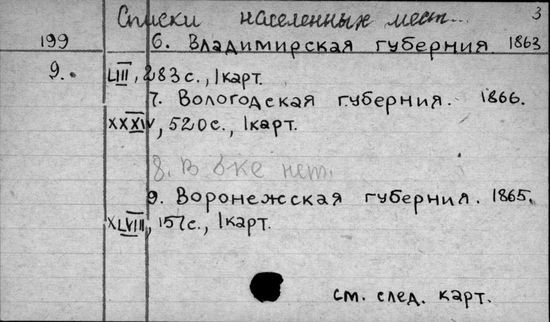 Списки населенных мест... 3
199 6. Владимирская губерния. 1863
9. LIII, 283 с., 1 карт.
7. Вологодская губерния. 1866.
XXXIV, 520 с., 1 карт.
8. В бке нет.
9. Воронежская губерния. 1865.
XLVIII, 157 с., 1 карт.
см. след. карт.